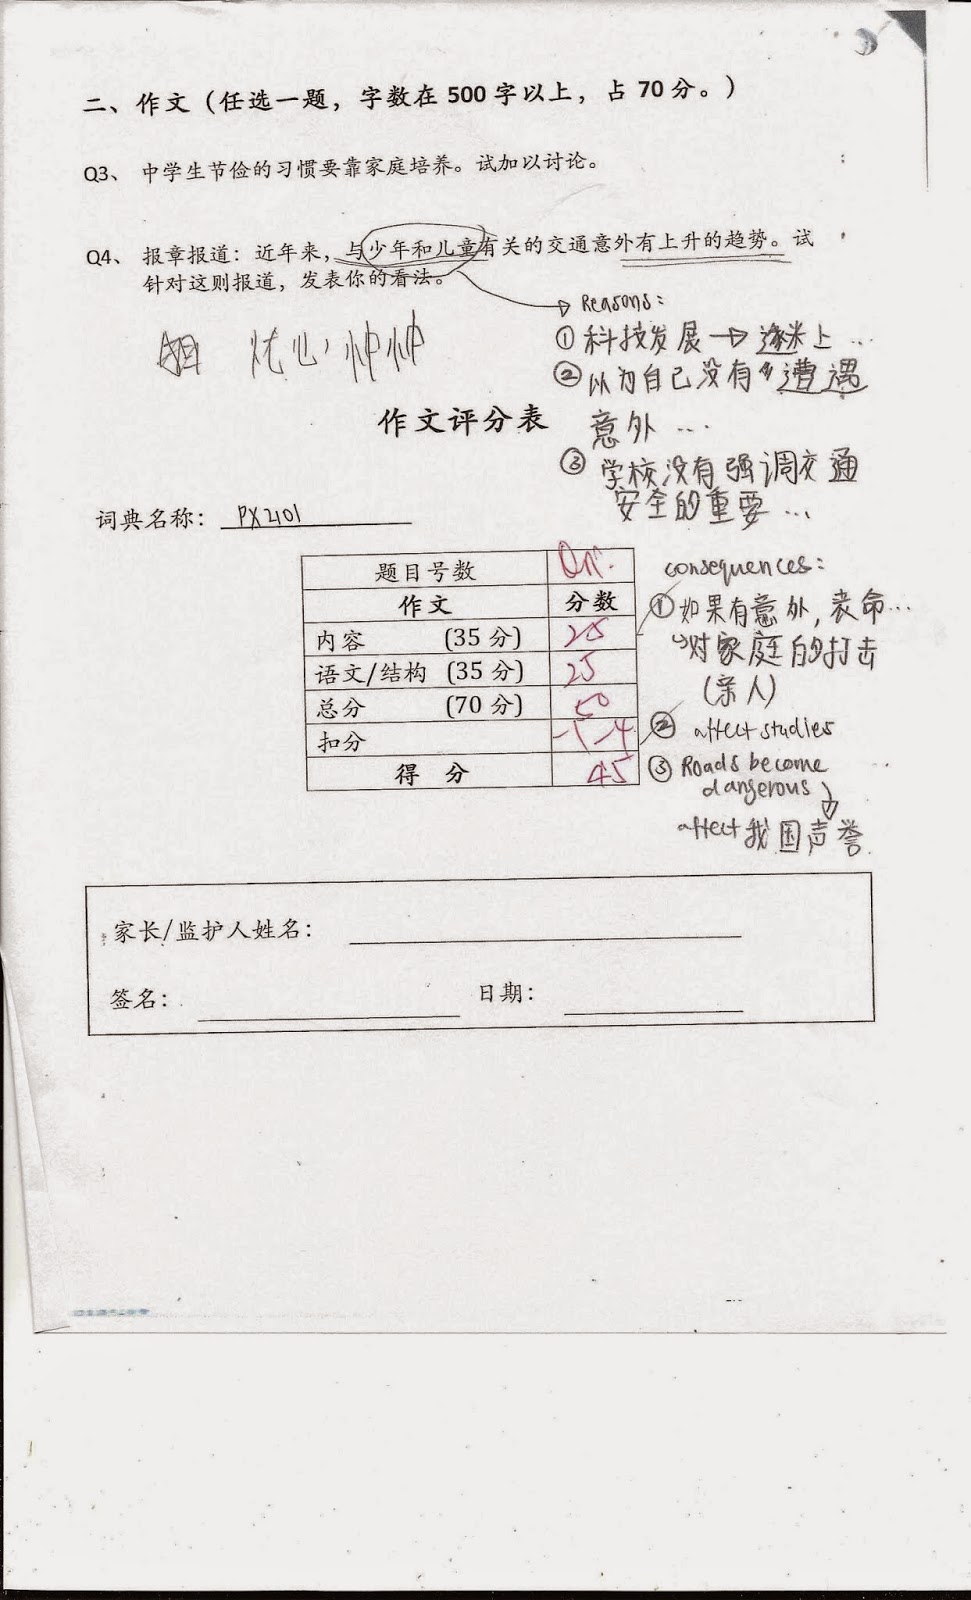 二、作文（任选一题，字数在 500 字以上，占 70 分。）
Q3、 中学生节俭的习惯要靠家庭培养。试加以讨论。
Q4、 报章报道：近年来，与少年和儿童有关的交通意外有上升的趋势。试
针对这则报道，发表你的看法。
忧心忡忡
Reasons:
① 科技发展 → 迷上 ...
② 以为自己没有遭遇
意外 ...
③ 学校没有强调交通
安全的重要 ...
作文评分表
词典名称： PX2101
题目号数
作文 分数
内容 (35 分) 25
语文/结构 (35 分) 25
总分 (70 分) 50
扣分
得 分 45
consequences:
① 如果有意外，丧命 ...
对家庭的打击
(亲人)
② affect studies
③ Roads become
dangerous
affect 我国声誉
家长/监护人姓名：
签名： 日期：